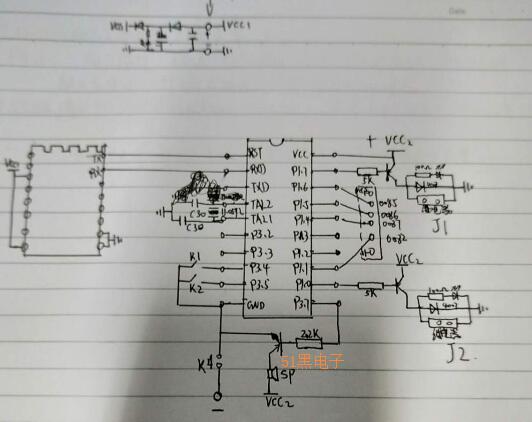 VCC1
VCC2
RST
VCC
TX
RXD
P1.7
RX
5K
TXD
P1.6
TAL2
P1.5
0085
C30
0086
TAL1
P1.4
0087
J1
C30
P3.2
0082
P3.3
P1.2
K1
P3.4
P1.1
VCC2
K2
P3.5
P1.0
5K
GND
P3.7
4007
2.2K
J2.
51黑电子
K4
SP
VCC2